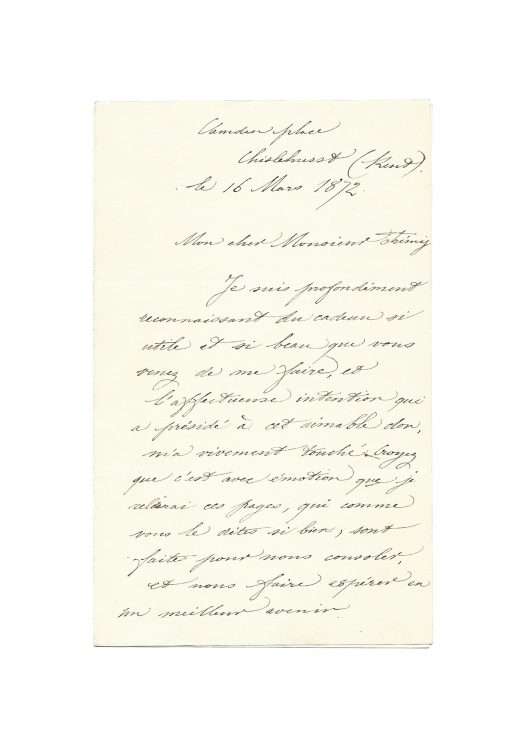 Camden place
Chislehurst (Kent).
le 16 Mars 1872.
Mon cher Monsieur
Je suis profondément
reconnaissant du cadeau si
utile et si beau que vous
venez de me faire, et
l'affectueuse intention qui
a présidé à cet aimable don,
m'a vivement touché. Croyez
que c'est avec émotion que je
relirai ces pages, qui comme
vous le dites si bien, sont
faites pour nous consoler,
et nous faire espérer en
un meilleur avenir.